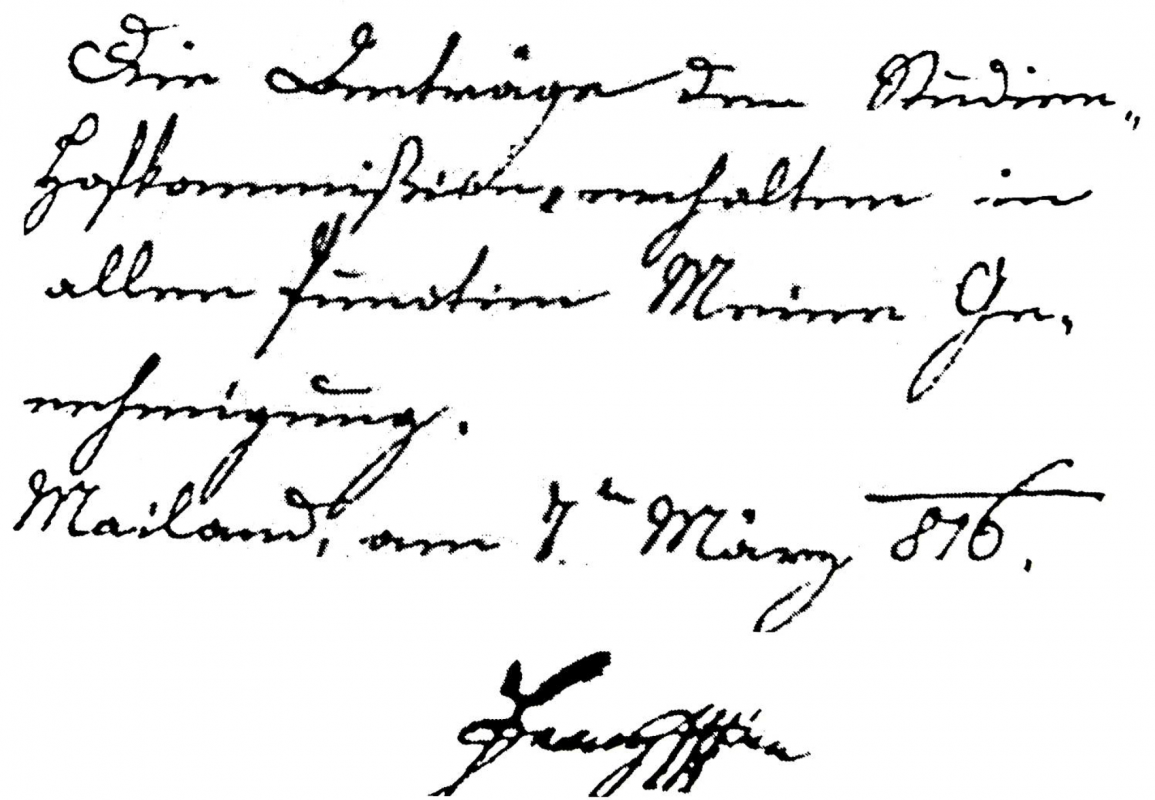 Die Anträge der Studien„
Hofkommißion, erhalten in
allen Puncten Meine Ge„
nehmigung.
Mailand, am 7.ten März 816.
Franz